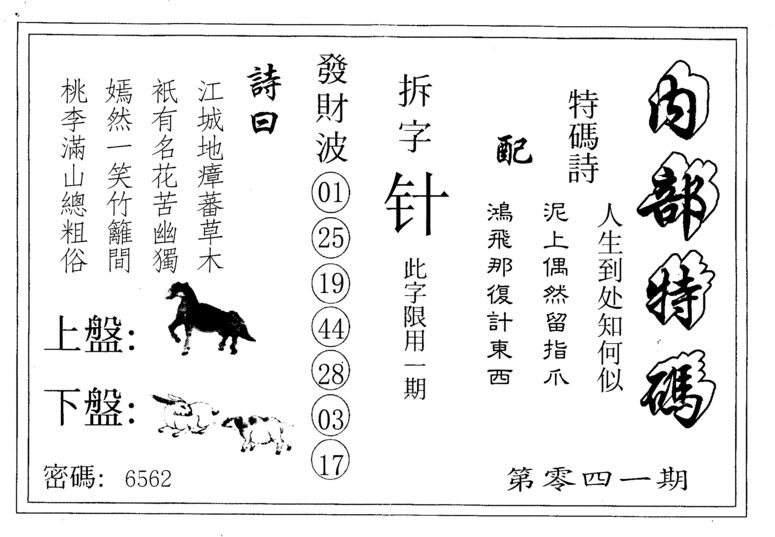 内部特碼
特碼詩
人生到处知何似
泥上偶然留指爪
鴻飛那復計東西
配
拆字
针
此字限用一期
發財波
01
25
19
44
28
03
17
詩曰
江城地瘴蕃草木
衹有名花苦幽獨
嫣然一笑竹籬間
桃李滿山總粗俗
上盤：
下盤：
密碼：6562
第零四一期